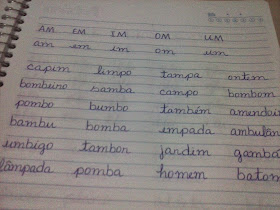 AM EM IM OM UM
am em im om um
capim limpo tampa ontem
bombeiro samba campo bombom
pombo bumbo também
bambu bomba empada
umbigo tambor jardim
lâmpada pomba homem batom